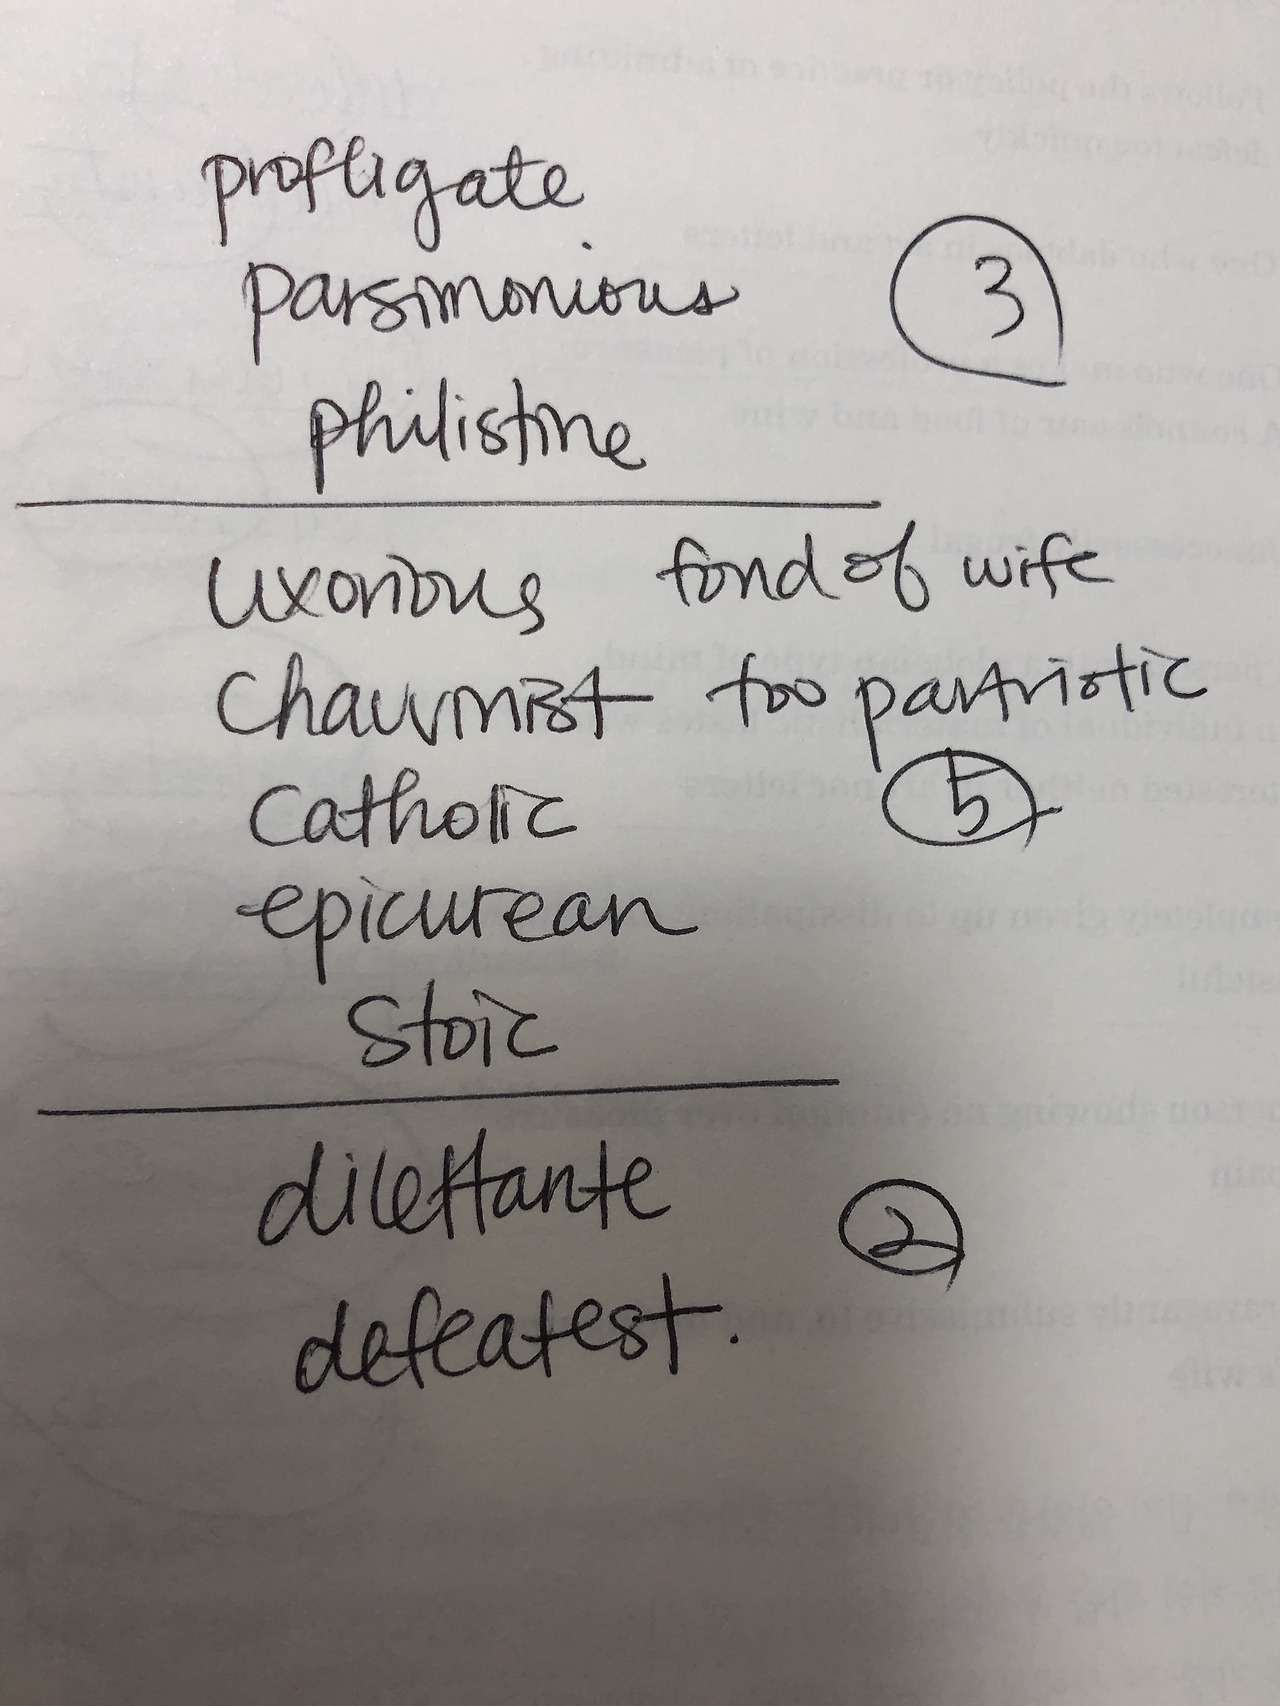 profligate
parsimonious
3
philistine
uxorious fond of wife
chauvinist too partriotic
catholic
5
epicurean
stoic
dilettante
2
defeatest.